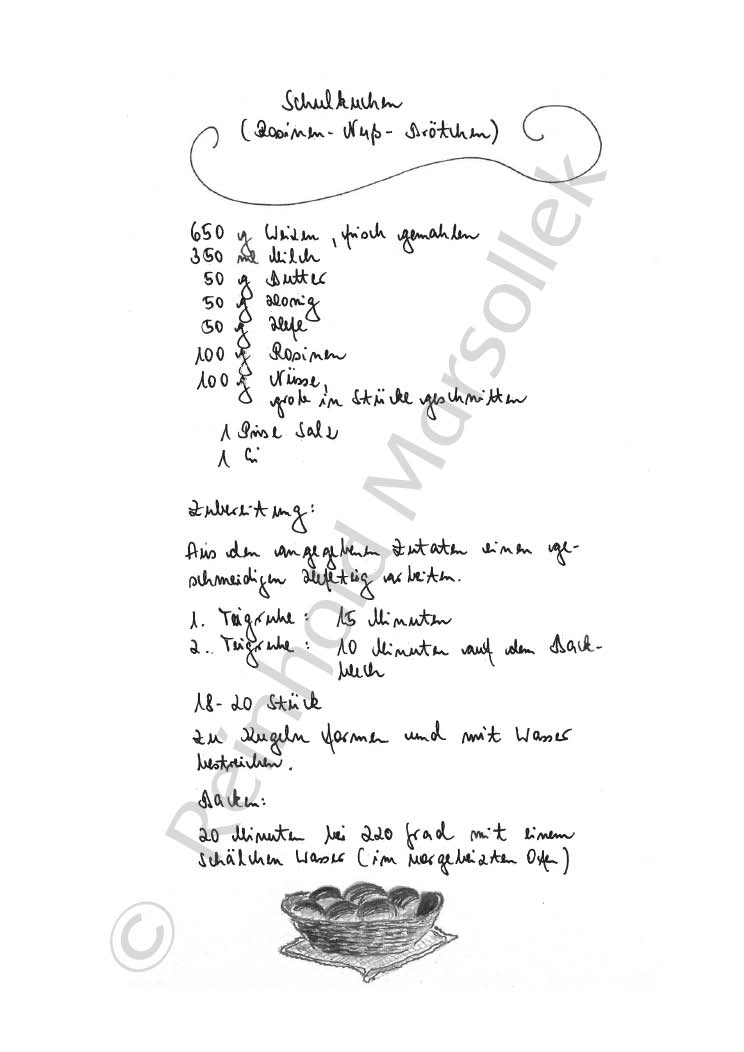 Schulkuchen
(Rosinen-Nuß-Brötchen)
650 g Weizen, frisch gemahlen
350 ml Milch
50 g Butter
50 g Honig
50 g Hefe
100 g Rosinen
100 g Nüsse,
grob in Stücke geschnitten
1 Prise Salz
1 Ei
Zubereitung:
Aus den angegebenen Zutaten einen ge-
schmeidigen Hefeteig arbeiten.
1. Teigruhe: 15 Minuten
2. Teigruhe: 10 Minuten auf dem Back-
blech
18-20 Stück
zu Kugeln formen und mit Wasser
bestreichen.
Backen:
20 Minuten bei 220 Grad mit einem
Schälchen Wasser (im vorgeheizten Ofen)
© Reinhold Marsollek